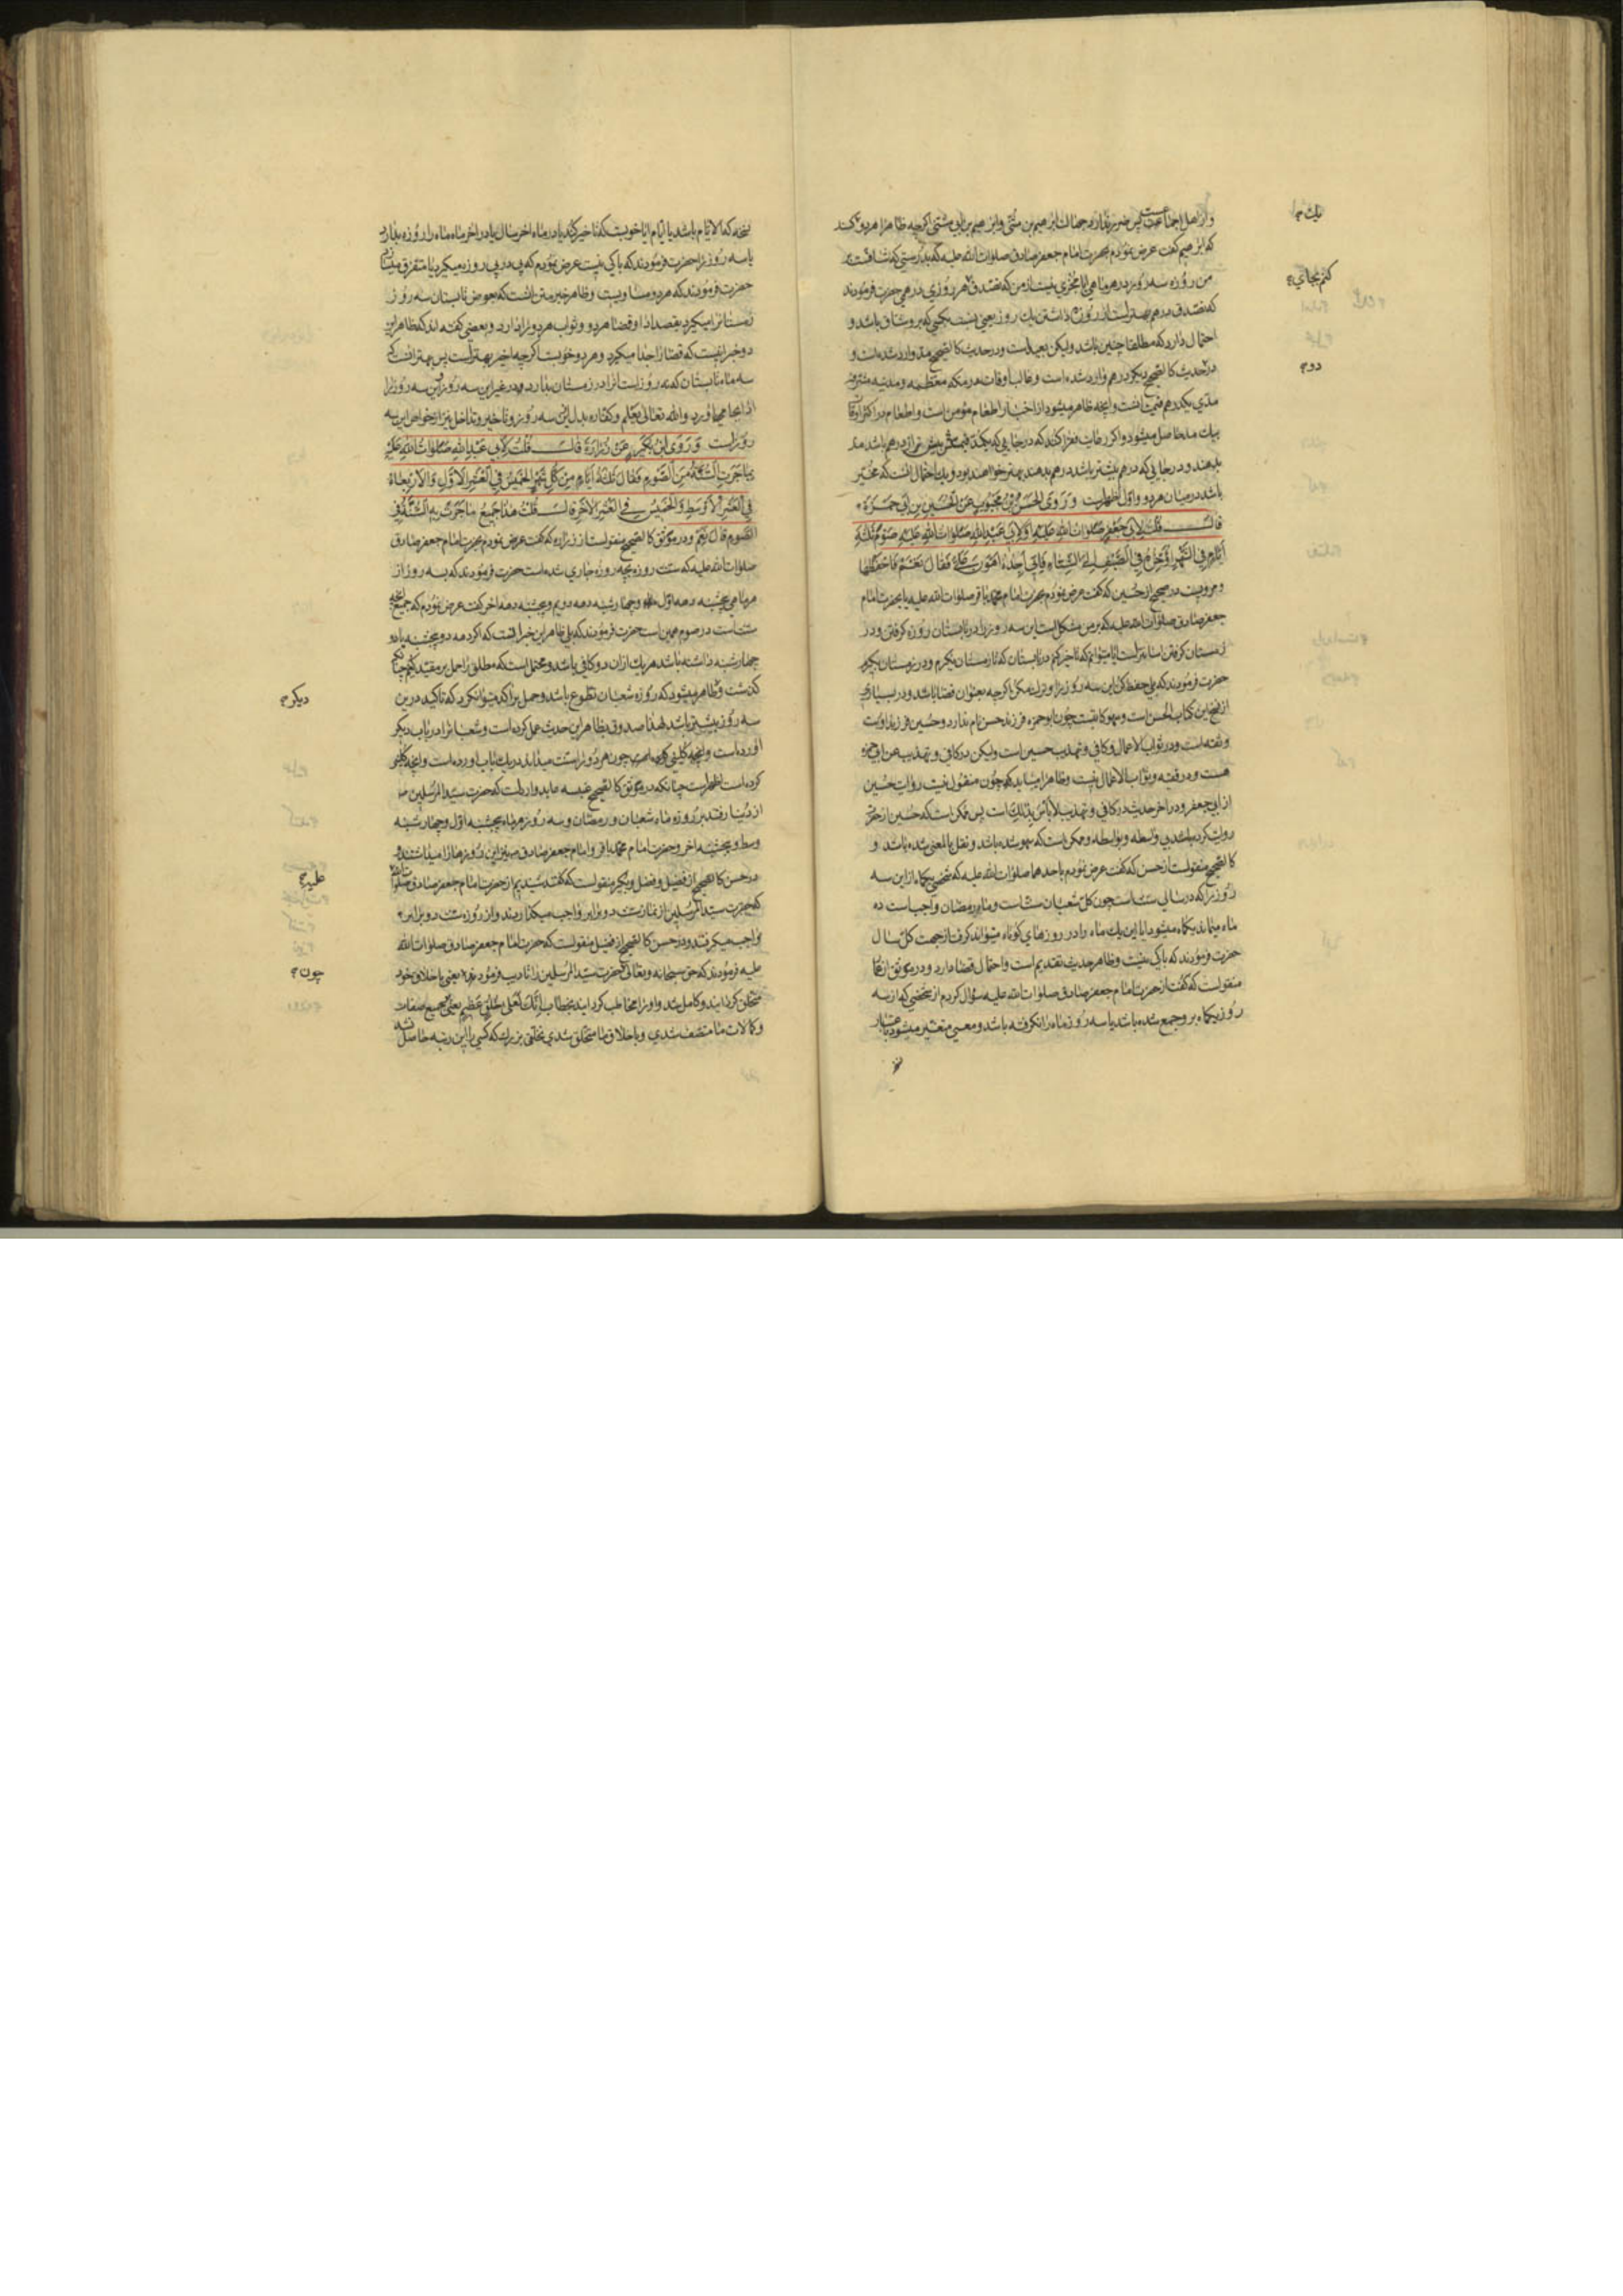 و از اهل اجماعست پس ضرر ندارد جهالت ابرهیم بن مثنی و ابرهیم بن ابی مثنی اگرچه ظاهرا هر دو یک کسند
که ابرهیم گفت عرض نمودم بحضرت امام جعفر صادق صلوات الله علیه که بدرستی که شاقست بر
من روزه سه روز در هر ماهی ایا مجزی نیست از من که تصدق کنم بجای هر روزی درهمی حضرت فرمودند
که تصدق درهم بهتر است از روزه داشتن یک روز یعنی نسبت بکسی که بر او شاق باشد و
احتمال دارد که مطلقا چنین باشد ولیکن بعید است و در حدیث کالصحیح مد وارد شده است و
در دو حدیث کالصحیح دیگر درهم وارد شده است و غالب اوقات در مکه معظمه و مدینه مشرفه
مدی بیکدرهم قیمت داشت و آنچه ظاهر میشود از اخبار اطعام مؤمن است و اطعام در اکثر اوقات
بیک مد حاصل میشود و اگر رعایت فقرا کنند که در جایی که یک مد قیمتش بیش تر از درهم باشد مد
بدهند و در جایی که درهم بیشتر باشد درهم بدهند بهتر خواهد بود و یک احتمال آنست که مخیر
باشد در میان هر دو و اول اظهرست وَ رَوَی الحَسَنُ بْنُ مَحْبُوبٍ عَنِ الْحُسَیْنِ بنِ اَبی حَمْزَةَ
قالَ قُلْتُ لِاَبی جَعْفَرٍ صَلَواتُ اللهِ عَلَیْهِ اَوْ لِاَبی عَبْدِ اللهِ صَلَواتُ اللهِ عَلَیْهِ صَوْمُ ثَلٰثَةِ
اَیّامٍ فِی الشَّهْرِ اُؤَخِّرُهُ فِی الصَّیْفِ اِلَی الشِّتاءِ فَاِنّی اَجِدُهُ اَهْوَنَ عَلَیَّ فَقالَ نَعَمْ فَاحْفَظْها
و مرویست در صحیح از حسین که گفت عرض نمودم بحضرت امام محمد باقر صلوات الله علیه یا بحضرت امام
جعفر صادق صلوات الله علیه که بر من مشکل است این سه روز را در تابستان روزه گرفتن و در
زمستان گرفتن آسانتر است ایا میتوانم که تاخیر کنم در تابستان که تا زمستان بگیرم و در زمستان بگیرم
حضرت فرمودند که بلی حفظ کن این سه روز را و ترک مکن یا اگرچه بعنوان قضا باشد و در بسیاری
از نسخ این کتاب الحسن است و سهو کاتبست چون ابو حمزه فرزند حسن نام ندارد و حسین فرزند اوست
و ثقه است و در ثواب الاعمال و کافی و تهذیب حسین است ولیکن در کافی و تهذیب عن ابی حمزه
هست و در فقیه و ثواب الاعمال نیست و ظاهرا میباید که چون منقول نیست روایت حسین
از ابی جعفر و در آخر حدیث در کافی و تهذیب لا باس بذلک است پس ممکن است که حسین از حضرت
روایت کرده باشد بی واسطه و بواسطه و ممکن است که سهو شده باشد و نقل بالمعنی شده باشد و
کالصحیح منقولست از حسن که گفت عرض نمودم باحدهما صلوات الله علیه که شخصی یکماه از این سه
روز را که در سالی سنت است چون کل شعبان سنت است و ماه رمضان واجب است ده
ماه میماند یکماه میشود ایا این یک ماه را در روزهای کوتاه میتواند گرفت از جهت کل سال
حضرت فرمودند که باکی نیست و ظاهر حدیث تقدیم است و احتمال قضا دارد و در موثق از عمار
منقولست که گفت از حضرت امام جعفر صادق صلوات الله علیه سؤال کردم از شخصی که از سه
روز یکماه بر او جمع شده باشد یا سه روز ماه را نگرفته باشد و معنی متغیر میشود باعتبار
یک
کنم بجای
دو
نسخه که الایام باشد یا ایام ایا خوبست که تاخیر کند یا در ماه اخر سال یا در اخر ماه ماه را روزه بدارد
یا سه روز را حضرت فرمودند که باکی نیست عرض نمودم که پی در پی روزه میگیرد یا متفرق میتواند
حضرت فرمودند که هر دو مساویست و ظاهر خبر متن آنست که بعوض تابستان سه روز
زمستانرا میگیرد بقصد ادا و قضا هر دو و ثواب هر دو را دارد و بعضی گفته اند که ظاهر این
دو خبر اینست که قضا را جدا میگیرد و هر دو خوبست اگرچه اخیر بهتر است پس بهتر آنست که
سه ماه تابستان که نه روز است انرا در زمستان بدارد و در غیر این سه روز این سه روز را
ادا بجا می آورد والله تعالی یعلم و کفاره بدل این سه روز و تاخیر و تداخل نیز از خواص این سه
روز است وَ رَوَی ابْنُ بُکَیْرٍ عَنْ زُرارَةَ قالَ قُلْتُ لِاَبی عَبْدِ اللهِ صَلَواتُ اللهِ عَلَیْهِ
بِما جَرَتِ السُّنَّةُ مِنَ الصَّوْمِ فَقالَ ثَلٰثَةُ اَیّامٍ مِنْ کُلِّ شَهْرٍ الخَمیسُ فِی الْعَشْرِ الْاَوَّلِ وَ الْاَرْبِعاءُ
فِی الْعَشْرِ الْاَوْسَطِ وَ الْخَمیسُ فِی الْعَشْرِ الْاٰخِرِ قالَ قُلْتُ هٰذا جَمیعُ ما جَرَتْ بِهِ السُّنَّةُ فِی
الصَّوْمِ قالَ نَعَمْ و در موثق کالصحیح منقولست از زراره که گفت عرض نمودم بحضرت امام جعفر صادق
صلوات الله علیه که سنت روزه بچه روزه جاری شده است حضرت فرمودند که بسه روز از
هر ماهی پنجشنبه دهه اول و چهارشنبه دهه دویم و پنجشنبه دهه اخر گفت عرض نمودم که جمیع آنچه
سنت است در صوم همین است حضرت فرمودند که بلی ظاهر این خبر آنست که اگر دهه دو پنجشنبه یا دو
چهارشنبه داشته باشد هر یک از آن دو کافی باشد و محتمل است که مطلق را حمل بر مقید کنیم چنانکه
گذشت و دیگر ظاهر میشود که روزه شعبان تطوع باشد و حمل بر آکد میتوان کرد که تاکید در این
سه روز بیشتر باشد لهذا صدوق بظاهر این حدیث عمل کرده است و شعبانرا در باب دیگر
آورده است و آنچه کلینی کرده است چون هر دو را سنت میداند در یک باب آورده است و آنچه کلینی
کرده است اظهر است چنانکه در موثق کالصحیح عنبسه عابد وارد است که حضرت سید المرسلین ص
از دنیا رفتند بر روزه ماه شعبان و رمضان و سه روز هر ماه پنجشنبه اول و چهارشنبه
وسط و پنجشنبه اخر و حضرت امام محمد باقر و امام جعفر صادق ع نیز این روزها را میداشتند و
در حسن کالصحیح از فضیل و فضل و بکیر منقولست که گفتند شنیدیم از حضرت امام جعفر صادق صلوات الله علیه
که حضرت سید المرسلین از نماز سنت دو برابر واجب میگذاریدند و از روزه سنت دو برابر
واجب میگرفتند و در حسن کالصحیح از فضیل منقولست که حضرت امام جعفر صادق صلوات الله
علیه فرمودند که حق سبحانه و تعالی چون حضرت سید المرسلین را تادیب فرمود یعنی باخلاق خود
متخلق گردانید و کامل شد و او را مخاطب گردانید بخطاب اِنَّکَ لَعَلی خُلُقٍ عَظیمٍ یعنی بجمیع صفات
و کمالات ما متصف شدی و باخلاق ما متخلق شدی بخلقی بزرگ که کسی را این رتبه حاصل نشد
دیگر
علیه
چون